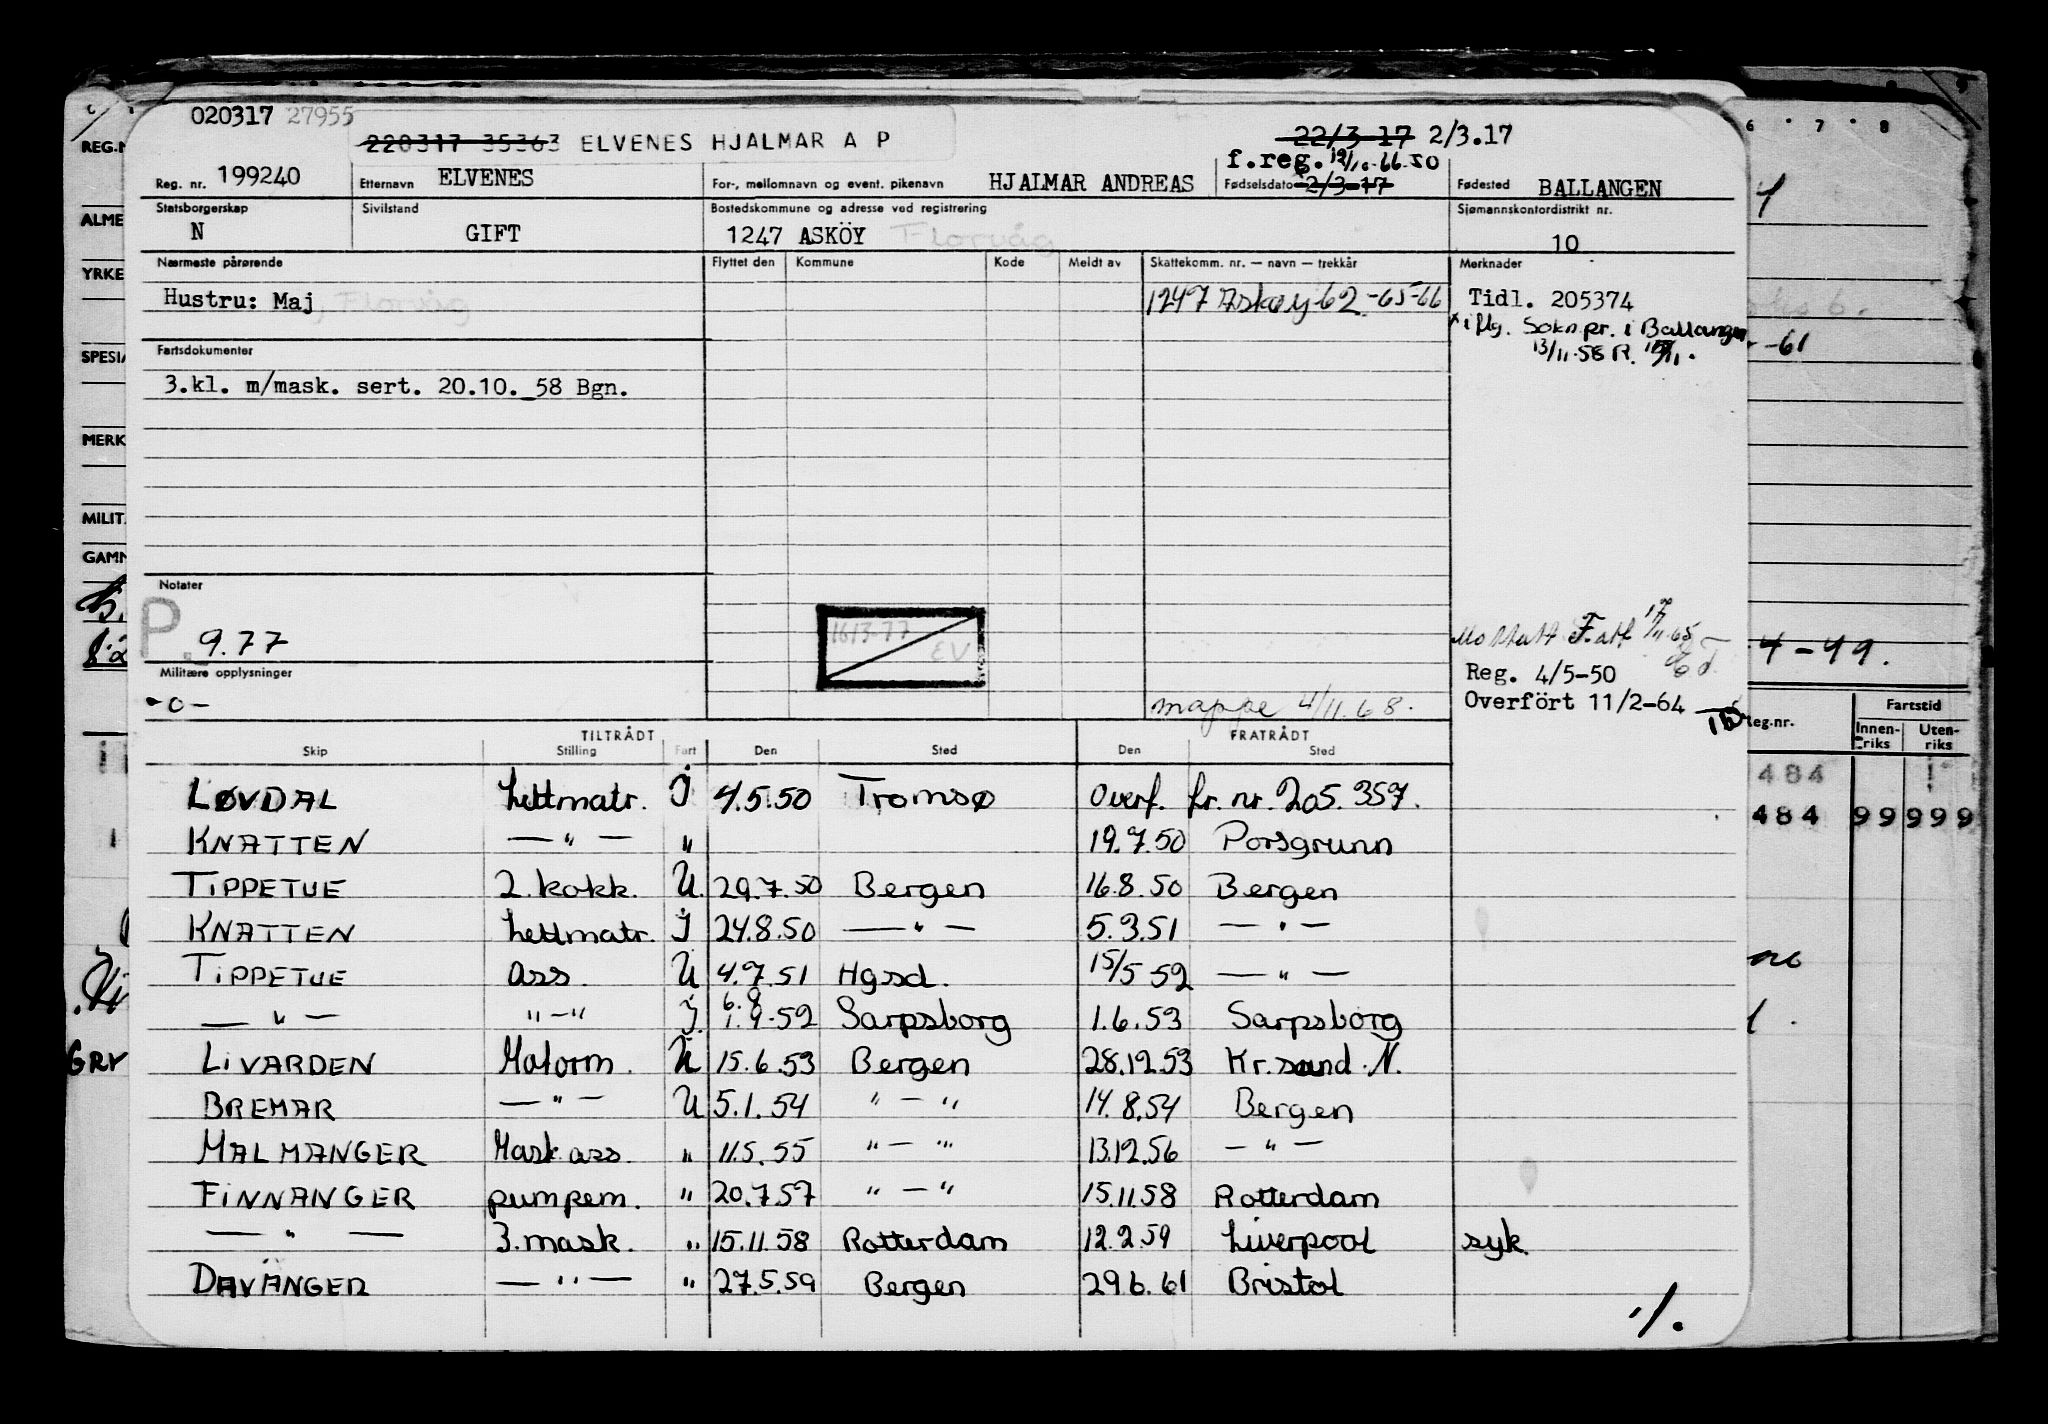 020317 27955
220317 35363 ELVENES HJALMAR A P
22/3-17 2/3.17
f.reg.
Reg. nr. 199240 Etternavn ELVENES For-, mellomnavn og event. pikenavn HJALMAR ANDREAS Fødselsdato 2/3-17 Fødested BALLANGEN
Statsborgerskap Sivilstand Bostedskommune og adresse ved registrering Sjømannskontordistrikt nr.
N GIFT 1247 ASKÖY Florvåg 10
Nærmeste pårørende Flyttet den Kommune Kode Meldt av Skattekomm. nr. — navn — trekkår Merknader
Hustru: Maj 1247 Askøy 62-65-66 Tidl. 205374
iflg. Sokn.pr. i Ballangen
13/11-56 R.
Fartsdokumenter
3.kl. m/mask. sert. 20.10._58 Bgn.
Notater
P. 9.77
1613-77
EV
Reg. 4/5-50
Militære opplysninger
-o-
Overfört 11/2-64
mappe 4/11.68.
TILTRÅDT FRATRÅDT
Skip Stilling Fart Den Sted Den Sted
LØVDAL Lettmatr. I 4.5.50 Tromsø Overf. fr. nr. 205.357.
KNATTEN — " — " 19.7.50 Porsgrunn
TIPPETUE 2. kokk. U 29.7.50 Bergen 16.8.50 Bergen
KNATTEN Lettmatr. I 24.8.50 — " — 5.3.51 — " —
TIPPETUE ass. U 4.7.51 Hgsd. 15/5 52 — " —
— " — " — " I 6.8 1.9-52 Sarpsborg 1.6.53 Sarpsborg
LIVARDEN Motorm. U 15.6.53 Bergen 28.12.53 Kr.sund.N.
BREMAR — " — U 5.1.54 " — " 14.8.54 Bergen
MALMANGER Mask ass. " 11.5.55 " — " 13.12.56 — " —
FINNANGER pumpem. " 20.7.57 " — " 15.11.58 Rotterdam
— " — 3.mask. " 15.11.58 Rotterdam 12.2.59 Liverpool syk.
DAVANGER — " — " 27.5.59 Bergen 29.6.61 Bristol
./.
REG.N
ALME
YRKE
SPESIA
MERK
MILIT
GAMN
6 7 8
-61
4-49.
Reg.nr. Fartstid
Innen-riks Uten-riks
484
484 99 999